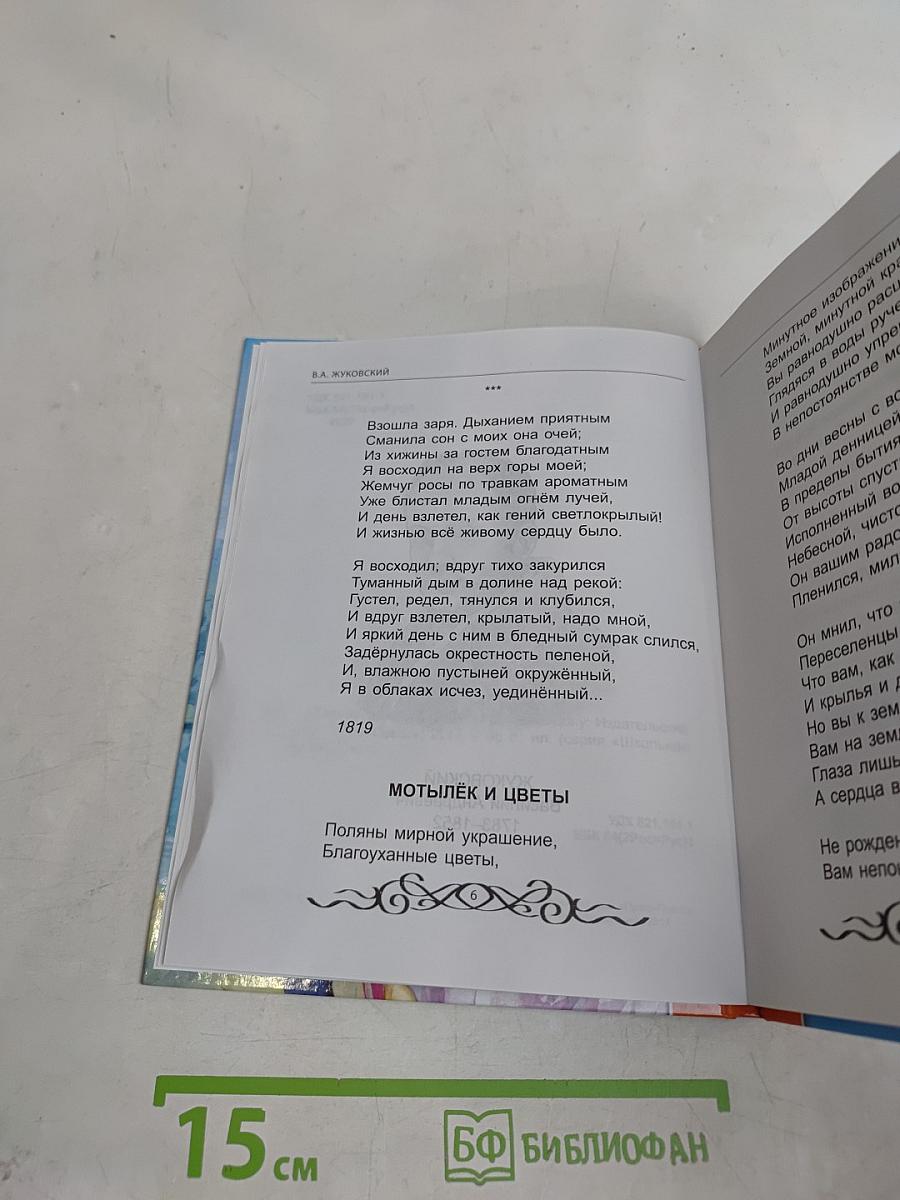 В.А. ЖУКОВСКИЙ
***
Взошла заря. Дыханием приятным
Сманила сон с моих она очей;
Из хижины за гостем благодатным
Я восходил на верх горы моей;
Жемчуг росы по травкам ароматным
Уже блистал младым огнём лучей,
И день взлетел, как гений светлокрылый!
И жизнью всё живому сердцу было.
Я восходил; вдруг тихо закурился
Туманный дым в долине над рекой:
Густел, редел, тянулся и клубился,
И вдруг взлетел, крылатый, надо мной,
И яркий день с ним в бледный сумрак слился,
Задёрнулась окрестность пеленой,
И, влажною пустыней окружённый,
Я в облаках исчез, уединённый...
1819
МОТЫЛЁК И ЦВЕТЫ
Поляны мирной украшение,
Благоуханные цветы,
6
Минутное
Земной, минутной
Вы равнодушно
Глядяся в воды
И равнодушно
В непостоянстве
Во дни весны с
Младой денницей
В пределы бытия
От высоты
Исполненный
Небесной,
Он вашим
Пленился,
Он мнил, что
Переселенцы
Что вам, как
И крылья и
Но вы к
Вам на
Глаза лишь
А сердца
Не
Вам
15 см
БФ БИБЛИОФАН